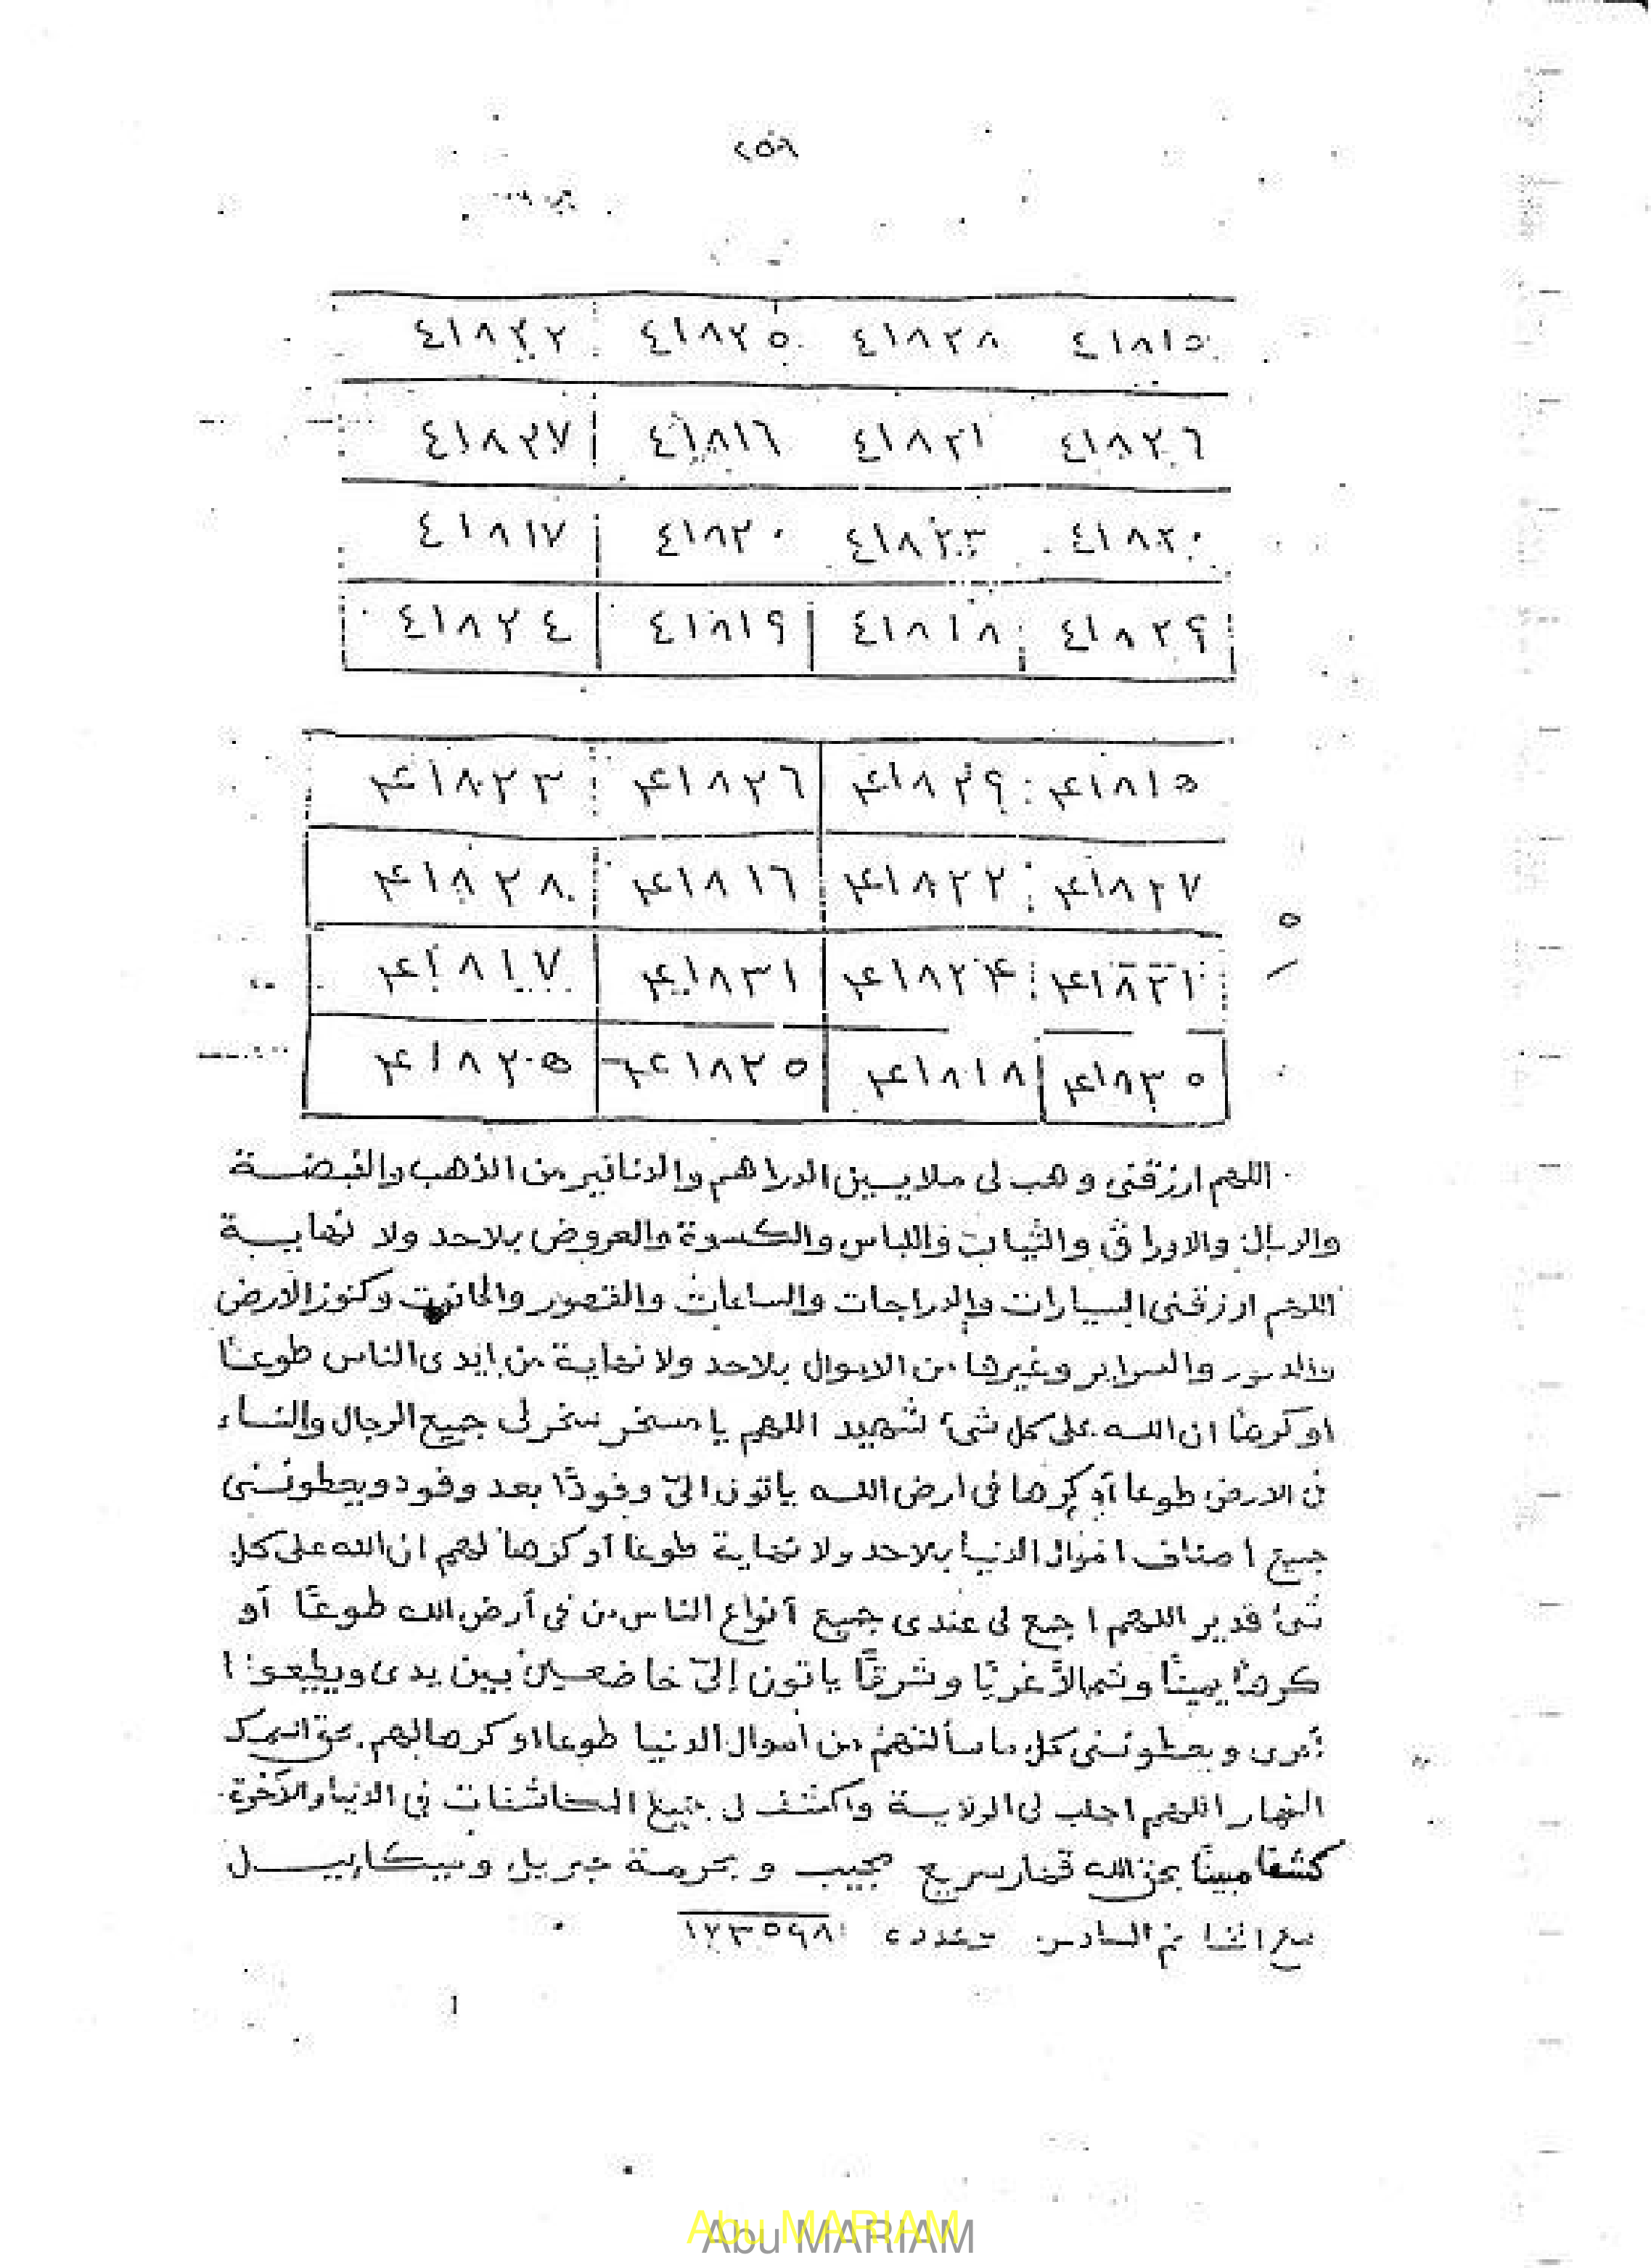 ٢٥٩
٤١٨١٥ ٤١٨٢٨ ٤١٨٢٥ ٤١٨٢٢
٤١٨٢٦ ٤١٨٢١ ٤١٨١٦ ٤١٨٢٧
٤١٨٢٠ ٤١٨٢٣ ٤١٨٢٠ ٤١٨١٧
٤١٨٢٩ ٤١٨١٨ ٤١٨١٩ ٤١٨٢٤
۴١٨١٥ ۴١٨٢٩ ۴١٨٢٦ ۴١٨٢٣
۴١٨٢٧ ۴١٨٢٢ ۴١٨١٦ ۴١٨٢٨
۴١٨٢١ ۴١٨٢۴ ۴١٨٣١ ۴١٨١٧
۴١٨٣٥ ۴١٨١٨ ۴١٨٢٥ ۴١٨٢٥
اللهم ارزقنى وهب لى ملايين الدراهم والدنانير من الذهب والفبضة
والريال والاوراق والثياب واللباس والكسوة والعروض بلاحد ولا نهاية
اللهم ارزقنى السيارات والدراجات والساعات والقصور وكنوز الارض
وغيرها من الاموال بلاحد ولا نهاية من ايدى الناس طوعا
او كرها ان الله على كل شئ شهيد اللهم يا مسخر سخر لى جميع الرجال والنساء
فى الارض طوعا أو كرها فى ارض الله ياتون الىّ وفودًا بعد وفود ويعطوننى
جميع اصناف اموال الدنيا بلاحد ولا نهاية طوعا أو كرها لهم ان الله على كل
شئ قدير اللهم اجمع لى عندى جميع أنواع الناس من فى أرض الله طوعًا أو
كرهًا يمينًا وشمالاً غربًا وشرقًا ياتون إلىّ خاضعين بين يدى ويطيعوا
أمرى ويعطوننى كل ما سألتهم من اموال الدنيا طوعا او كرها لهم بحق اسمك
القهار اللهم اجلب لى الولاية واكشف لى جميع الكائنات فى الدنيا والآخرة
كشفا مبينًا بحق الله قهار سريع مجيب وبحرمة جبريل وميكاييل
السادس ١٧٣٥٩٨
Abu MARIAM